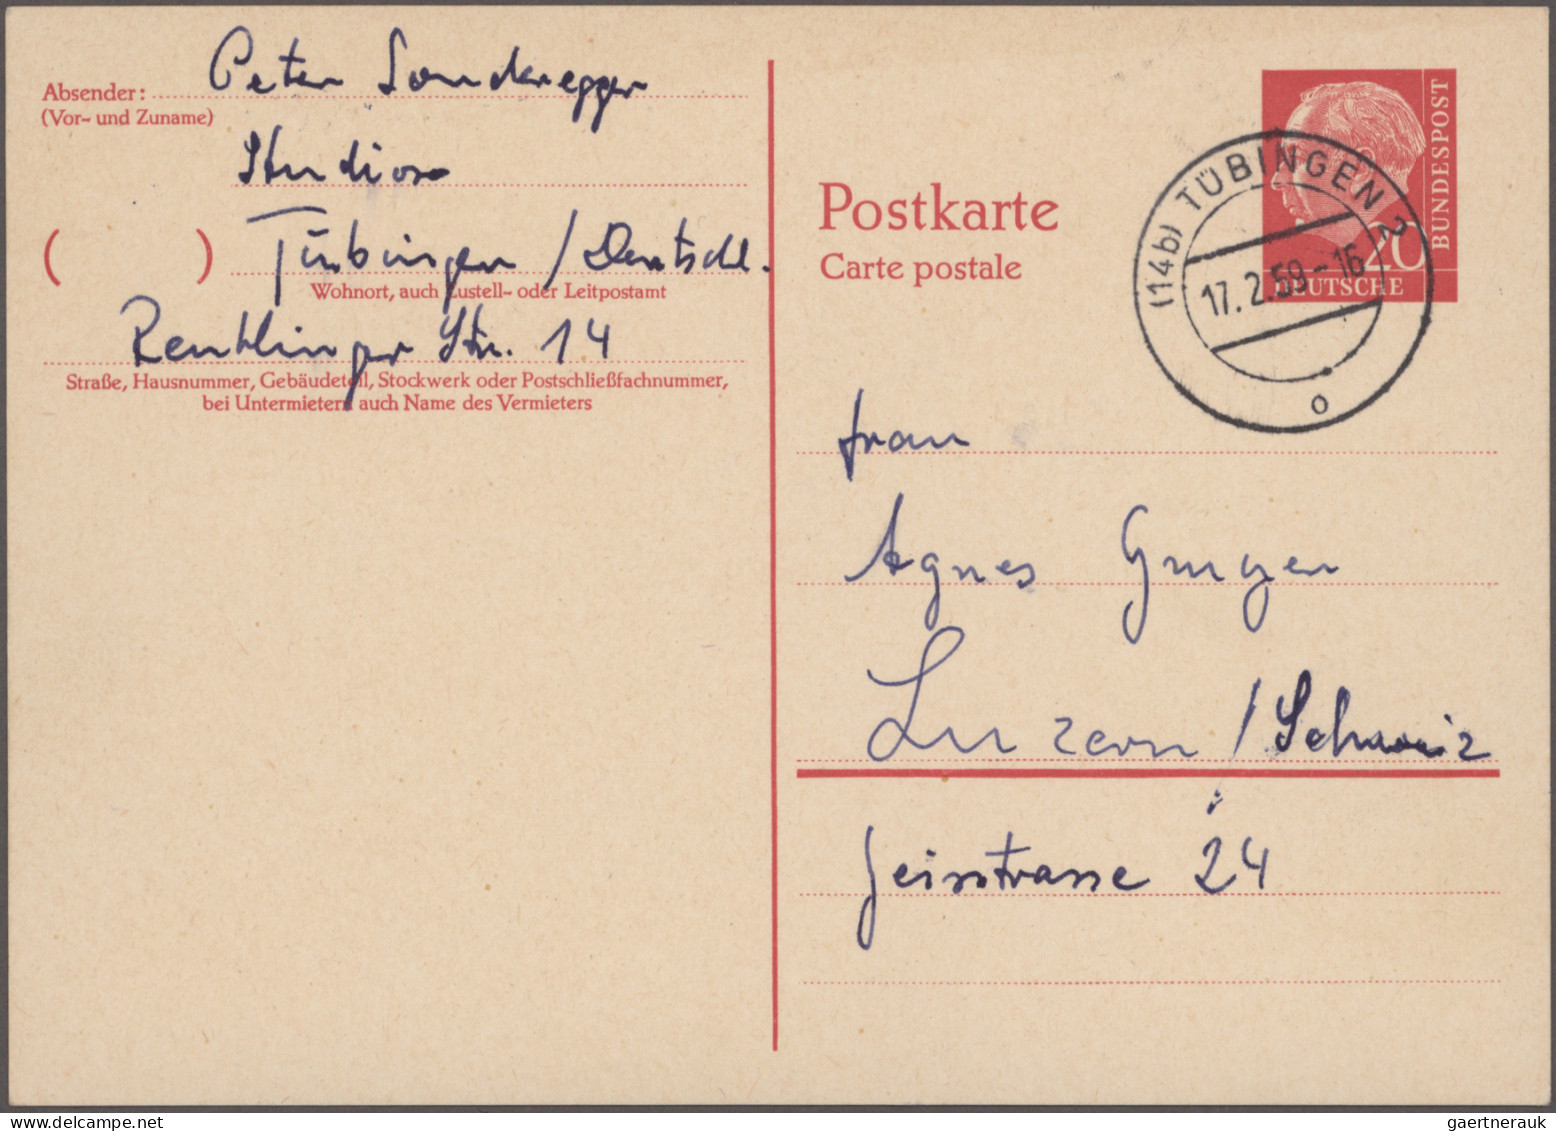 Absender: Peter Sonderegger
(Vor- und Zuname)
Studiosus
Tübingen / Deutschl.
( )
Wohnort, auch Zustell- oder Leitpostamt
Reutlinger Str. 14
Straße, Hausnummer, Gebäudeteil, Stockwerk oder Postschließfachnummer,
bei Untermietern auch Name des Vermieters
Postkarte
Carte postale
DEUTSCHE
BUNDESPOST
20
(14b) TÜBINGEN 2
17.2.59-16
o
Frau
Agnes
Luzern / Schweiz
Geisstrasse 24
gaertnerauk